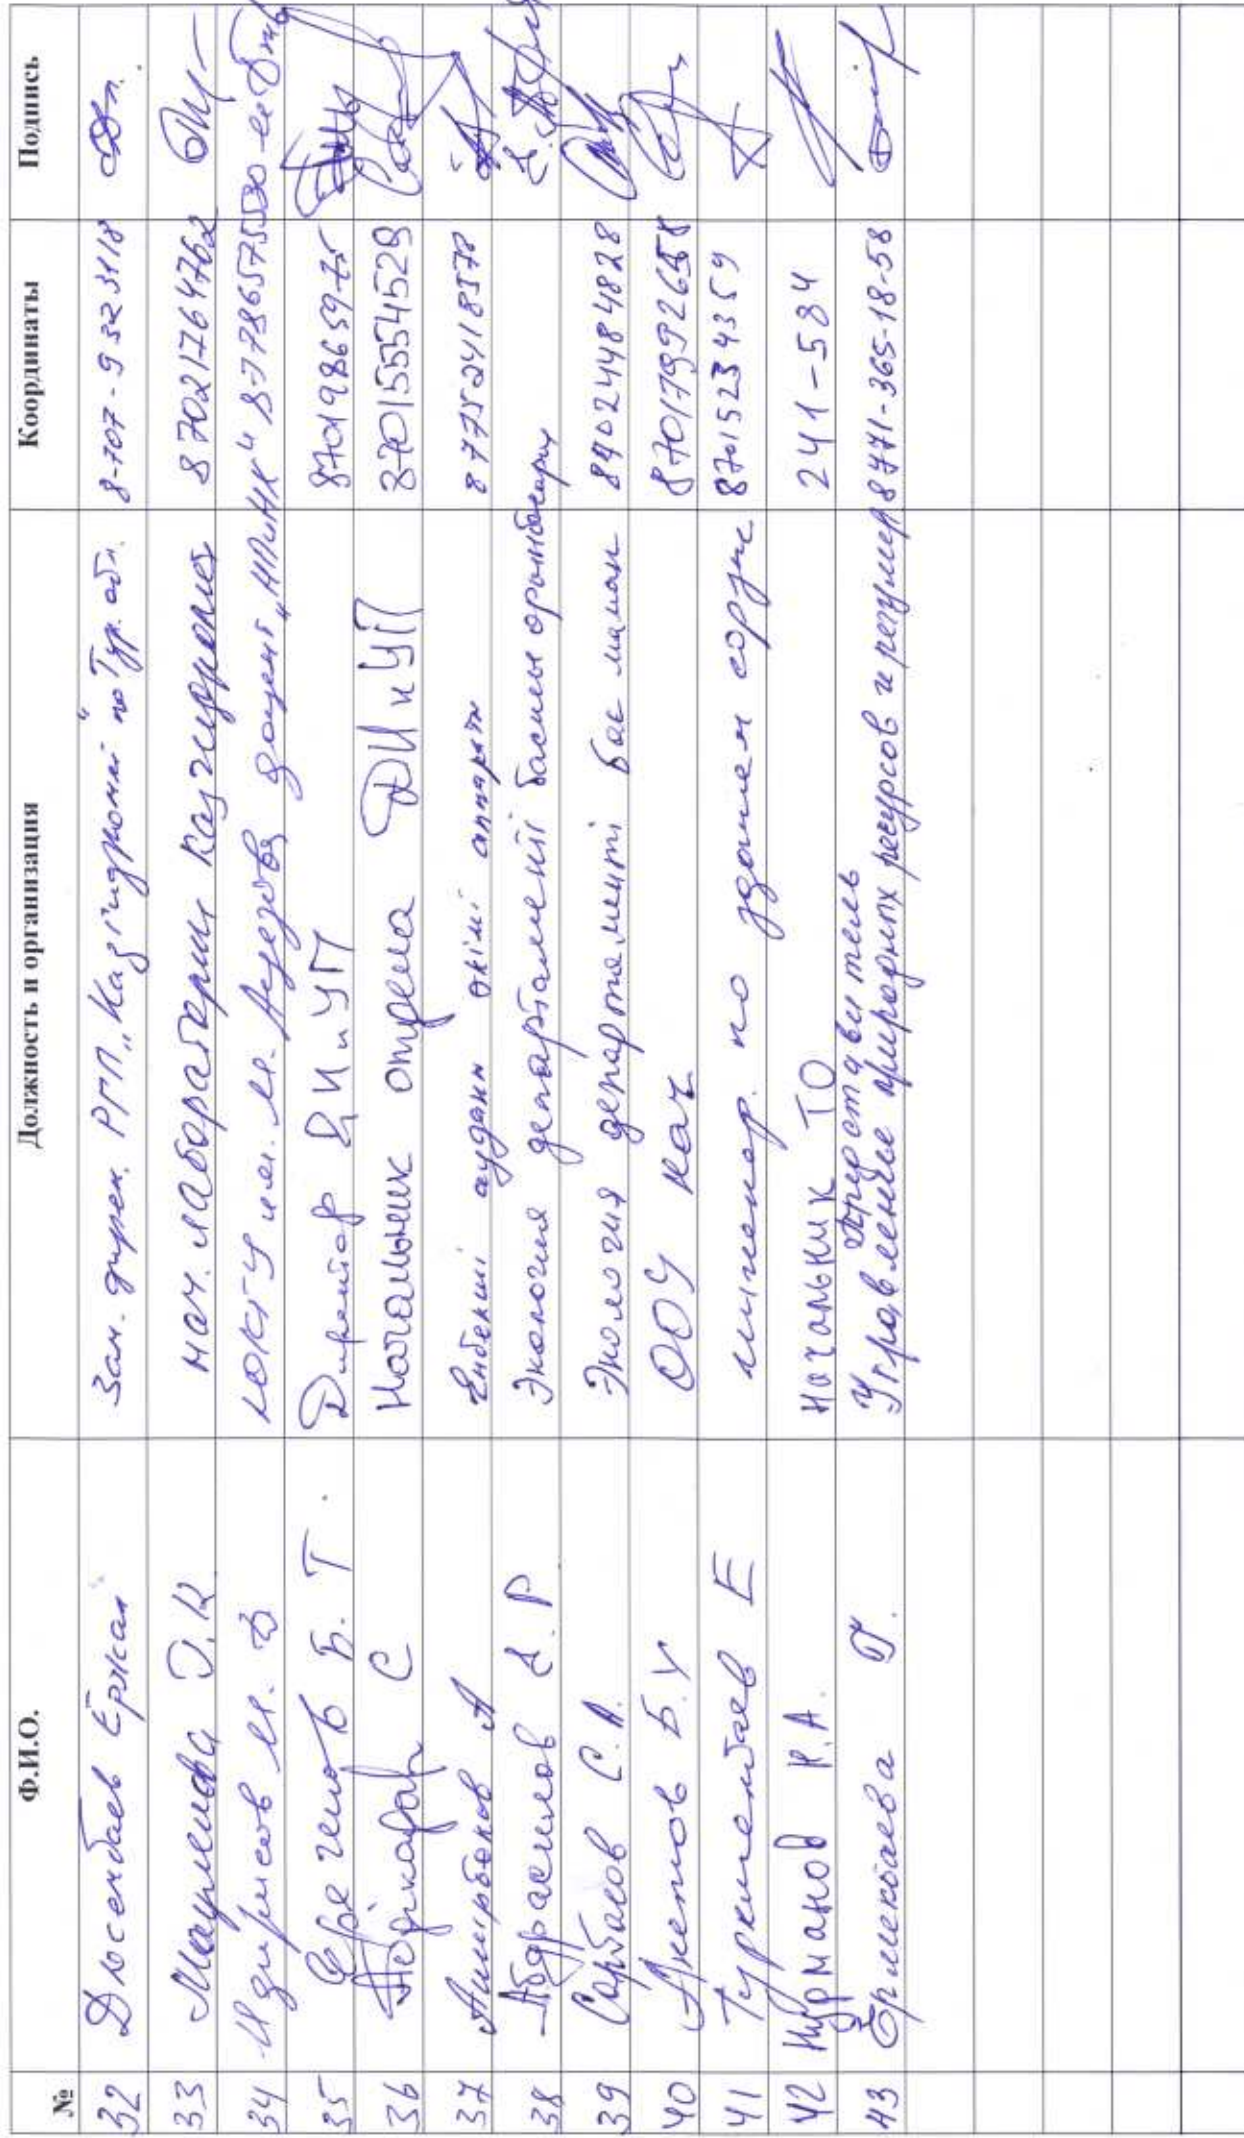 № Ф.И.О. Должность и организация Координаты Подпись
32 Дюсенбаев Ержан Зам. дирек. РГП „Казгидромет" по Тур. обл. 8-707-932 3118
33 Мауленова Э.К нач. лаборатории Казгидромет 87021764762
34 Идрисов М. ЮКГУ им. М. Ауезова доцент 87786575530
35 Б. Т. Директор ДИиУП 8701986
36 С Начальник отдела ДИиУП 87015554529
37 Аширбеков А Еңбекші ауданы әкімі аппараты 87752418578
38 Абдрасилов Е.Р Экология департаменті басшы орынбасары
39 Сарбасов С.А. Экология департаменті бас маман 84024484828
40 Акетов Б.У ООУ нач 87017992658
41 Туркменбаев Е инженер. по 87015234359
42 Нурманов К.А. начальник ТО 241-584
43 Ермекбаева Представитель Управление природных ресурсов и 8771-365-18-58